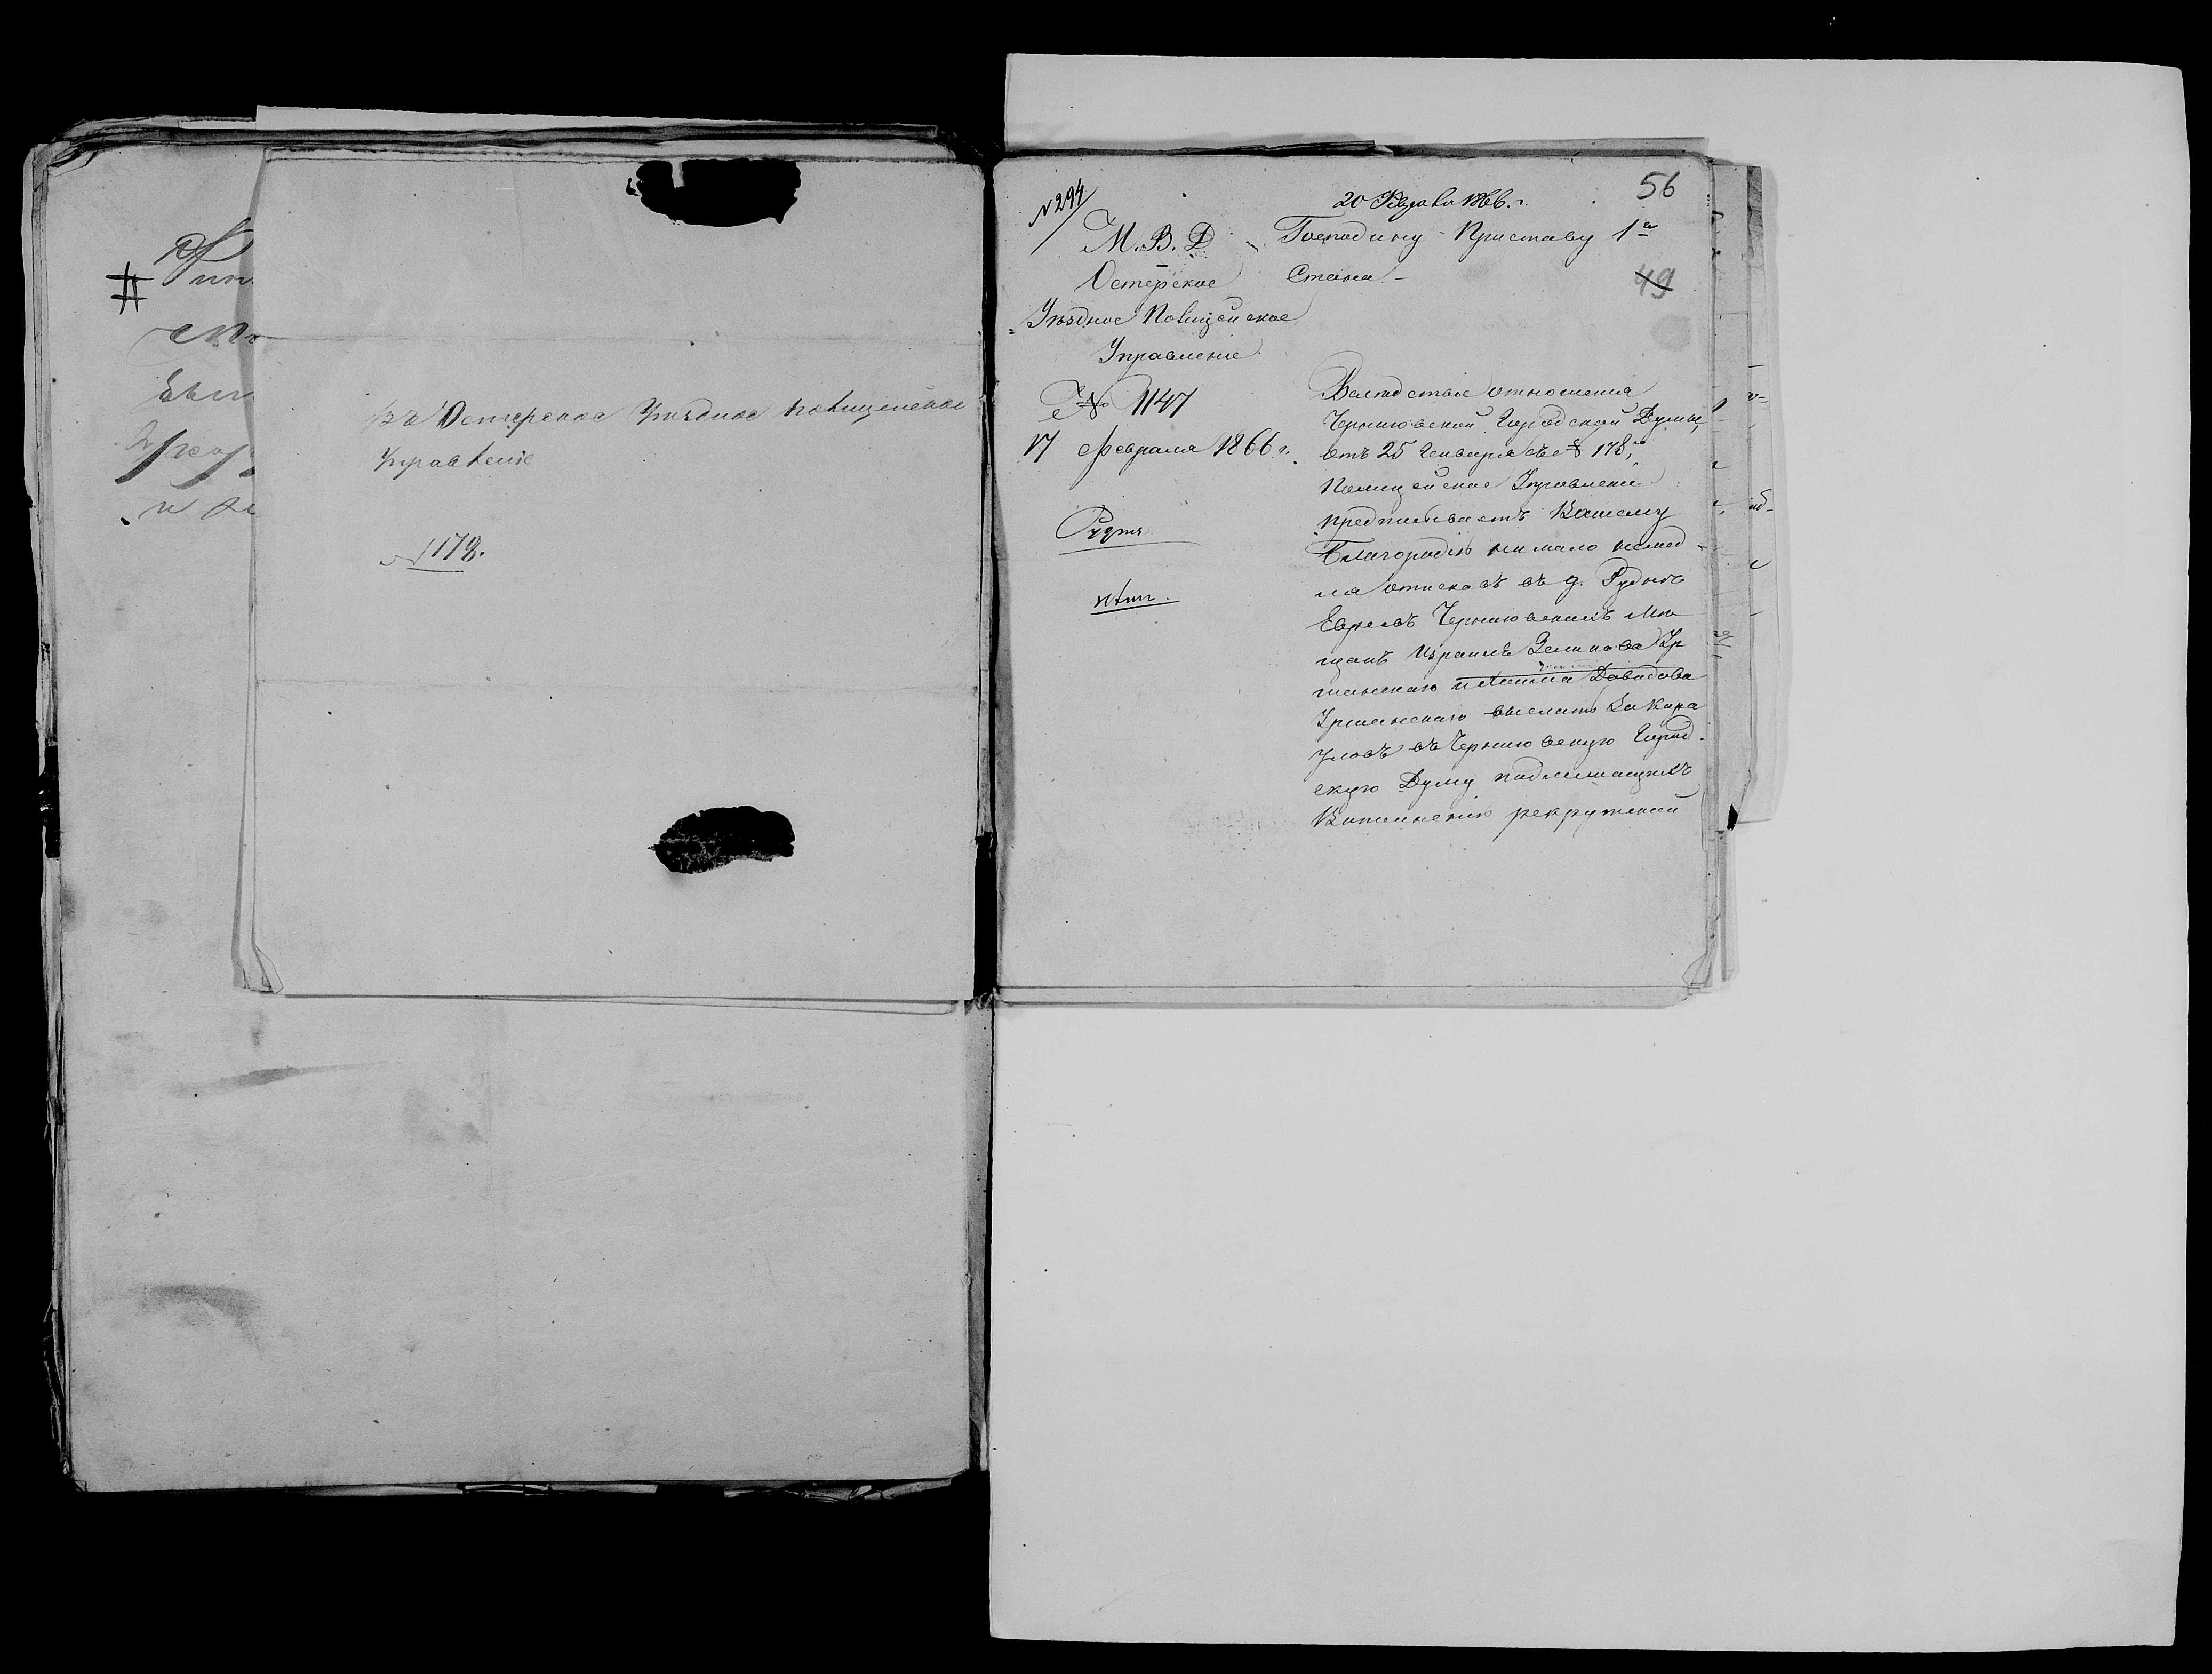 Въ Остерское Уѣздное полицейское
Управленіе
№ 1178.
№ 294
20 Февраля 1866 г.
56
М.В.Д
Остерское
Уѣздное Полицейское
Управленіе
№ 1147
17 февраля 1866 г.
Господину Приставу 1го
Стана
49
Вслѣдствіе отношенія
Черниговской Городской Думы,
отъ 25 Генваря за № 178,
Полицейское Управленіе
предписываетъ Вашему
Благородію ни мало немед-
ля отискавъ въ д. Рудьки
Евреевъ Черниговскихъ Мѣ
щанъ Израиля Зеликова Ур
шанскаго и Хаима Давидова
Уршанскаго выслать за Кара
уломъ въ Черниговскую Город-
скую Думу подлежащихъ
Выполненію рекрутской